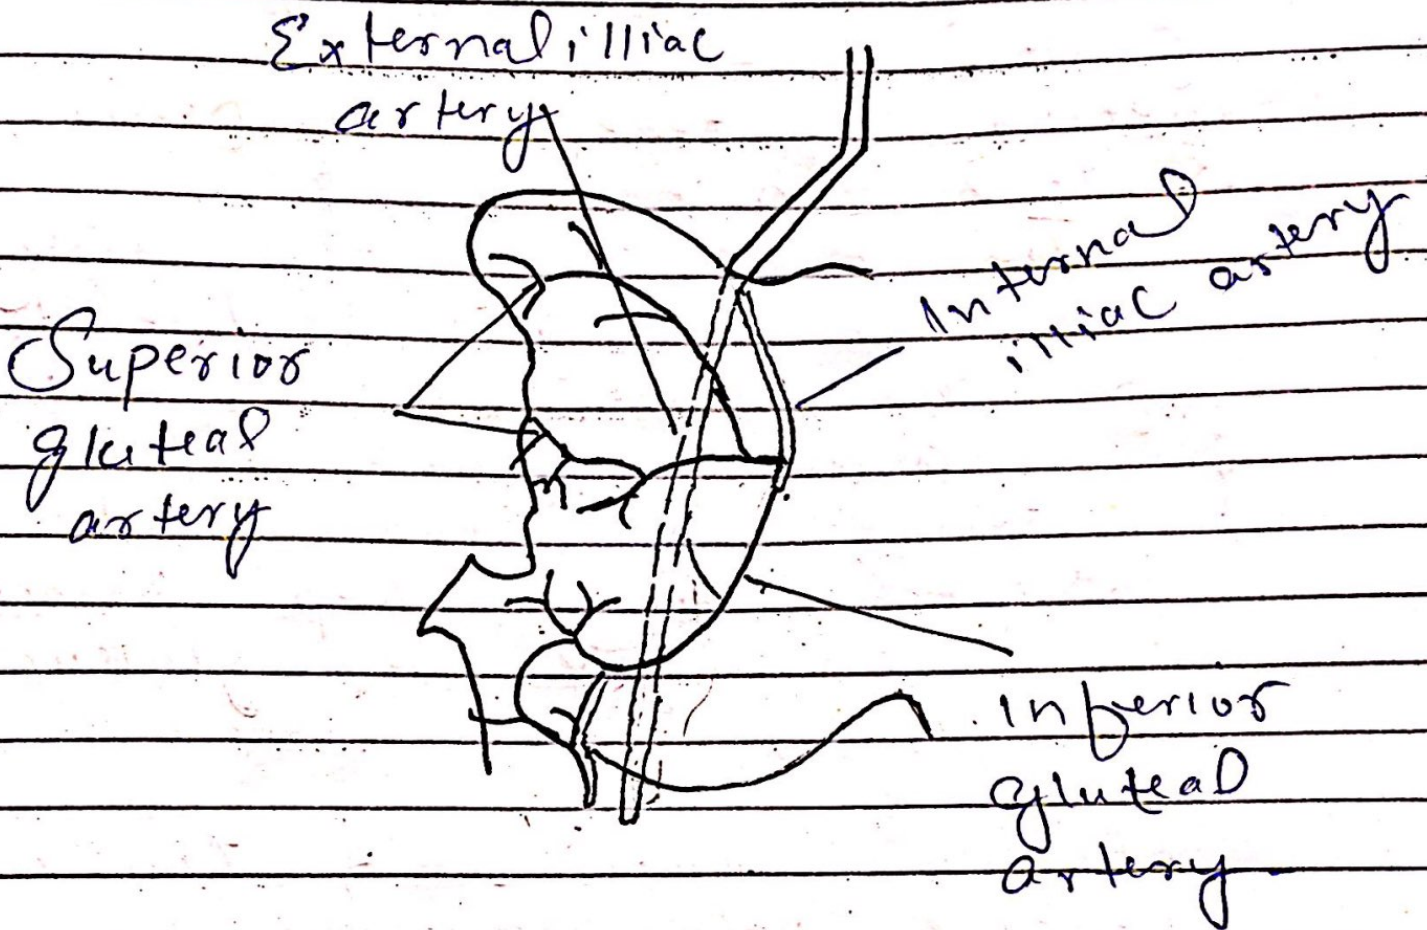 External illiac
artery
Internal
illiac artery
Superior
gluteal
artery
Inferior
gluteal
artery